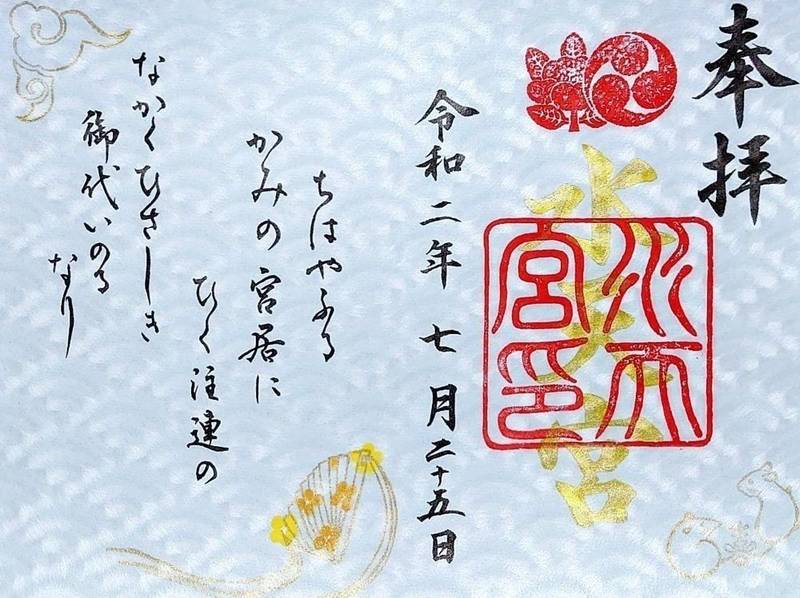 奉拝
水天宮
水天宮印
令和二年七月二十五日
ちはやふる
かみの宮居に
ひく注連の
なかくひさしき
御代いのる
なり